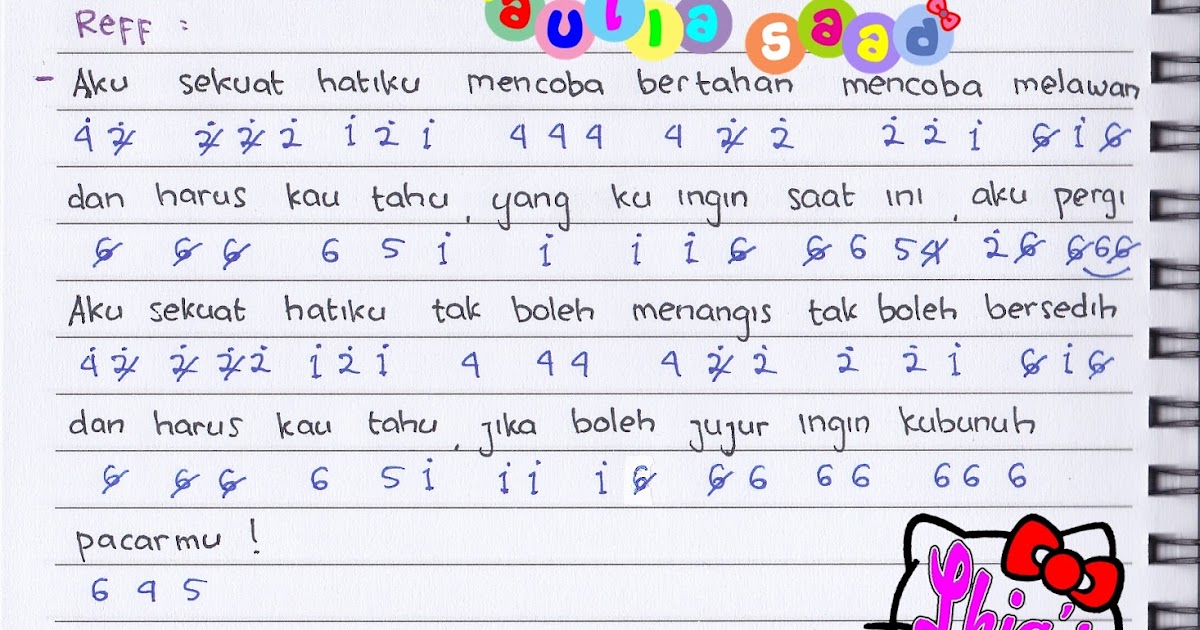 aulia saad
Reff :
- Aku sekuat hatiku mencoba bertahan mencoba melawan
4̇ 2̸̇ 2̸̇ 2̸̇ 2̇ 1̇ 2̇ 1̇ 4 4 4 4 2̸̇ 2̇ 2̇ 2̇ 1̇ 6̸ 1̇ 6̸
dan harus kau tahu, yang ku ingin saat ini, aku pergi
6̸ 6̸ 6̸ 6 5 1̇ 1̇ 1̇ 1̇ 6̸ 6̸ 6 5 4̸ 2̇ 6̸ 6̸ 6 6̸
Aku sekuat hatiku tak boleh menangis tak boleh bersedih
4̇ 2̸̇ 2̸̇ 2̸̇ 2̇ 1̇ 2̇ 1̇ 4 4 4 4 2̸̇ 2̇ 2̇ 2̇ 1̇ 6̸ 1̇ 6̸
dan harus kau tahu, jika boleh jujur ingin kubunuh
6̸ 6̸ 6̸ 6 5 1̇ 1̇ 1̇ 1̇ 6̸ 6̸ 6 6 6 6 6 6
pacarmu !
6 4 5